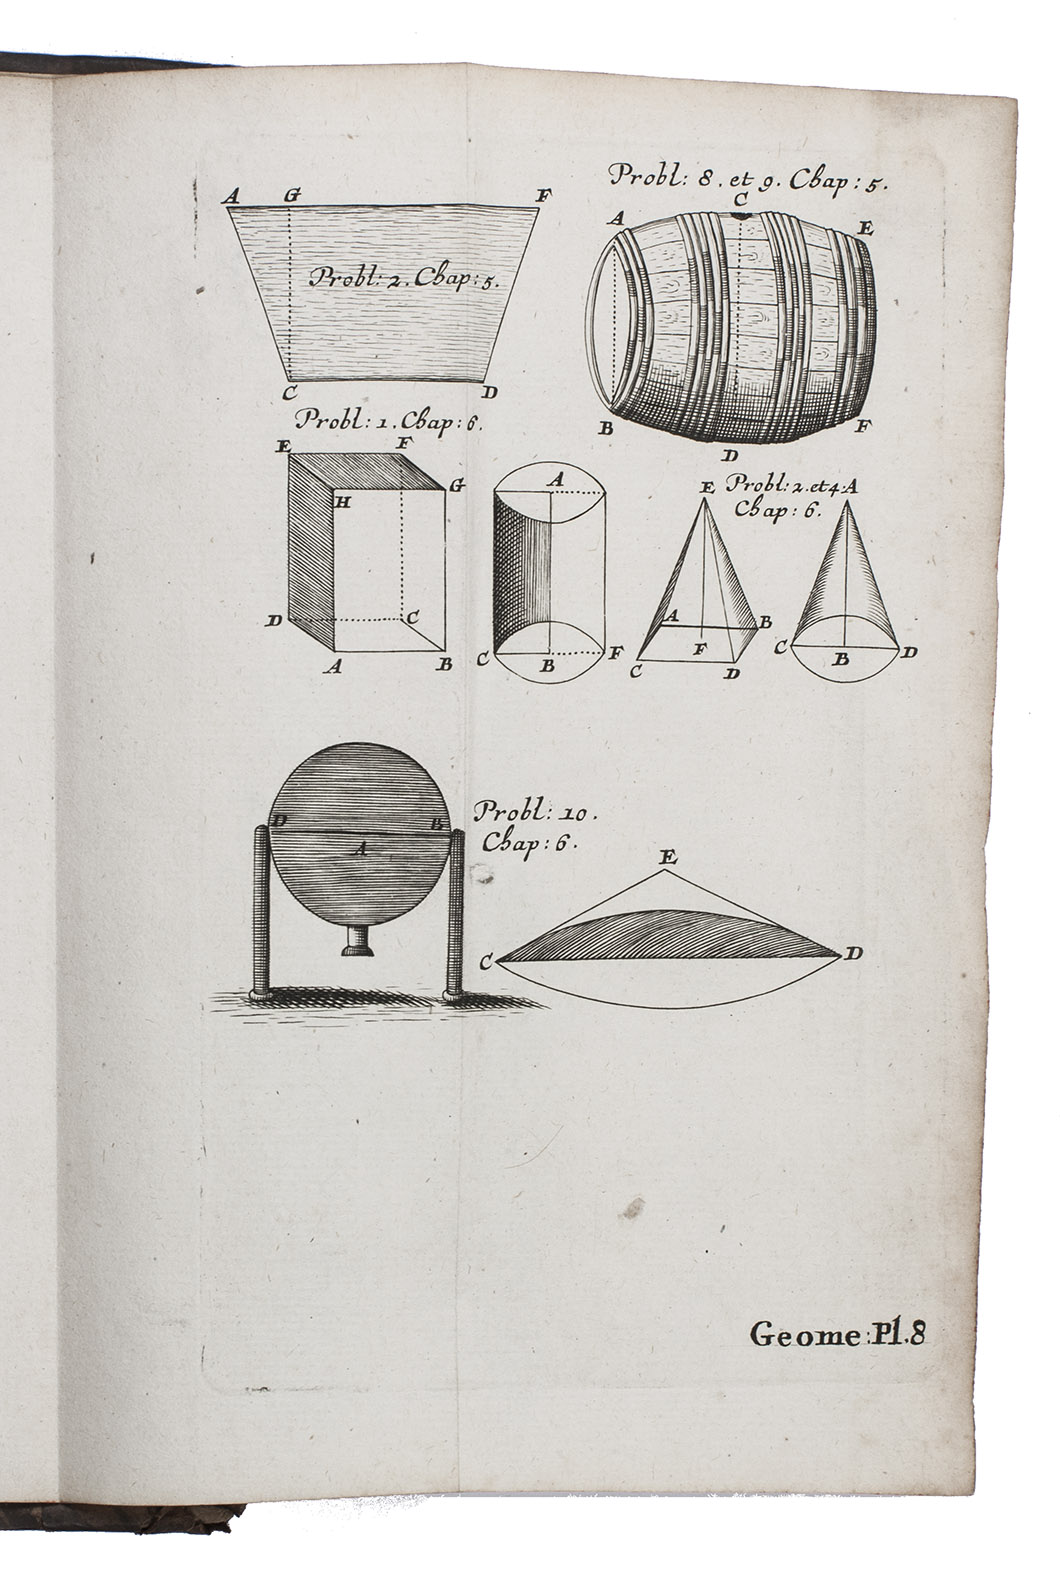 Probl: 8. et 9. Chap: 5.
A G F
C
A E
Probl: 2. Chap: 5.
C D
B F
D
Probl: 1. Chap: 6.
E F
H G
D C
A B
A
C B F
E Probl: 2. et 4. A
Chap: 6.
A B
F
C D
C B D
Probl: 10.
Chap: 6.
D B
A
E
C D
Geome: Pl. 8